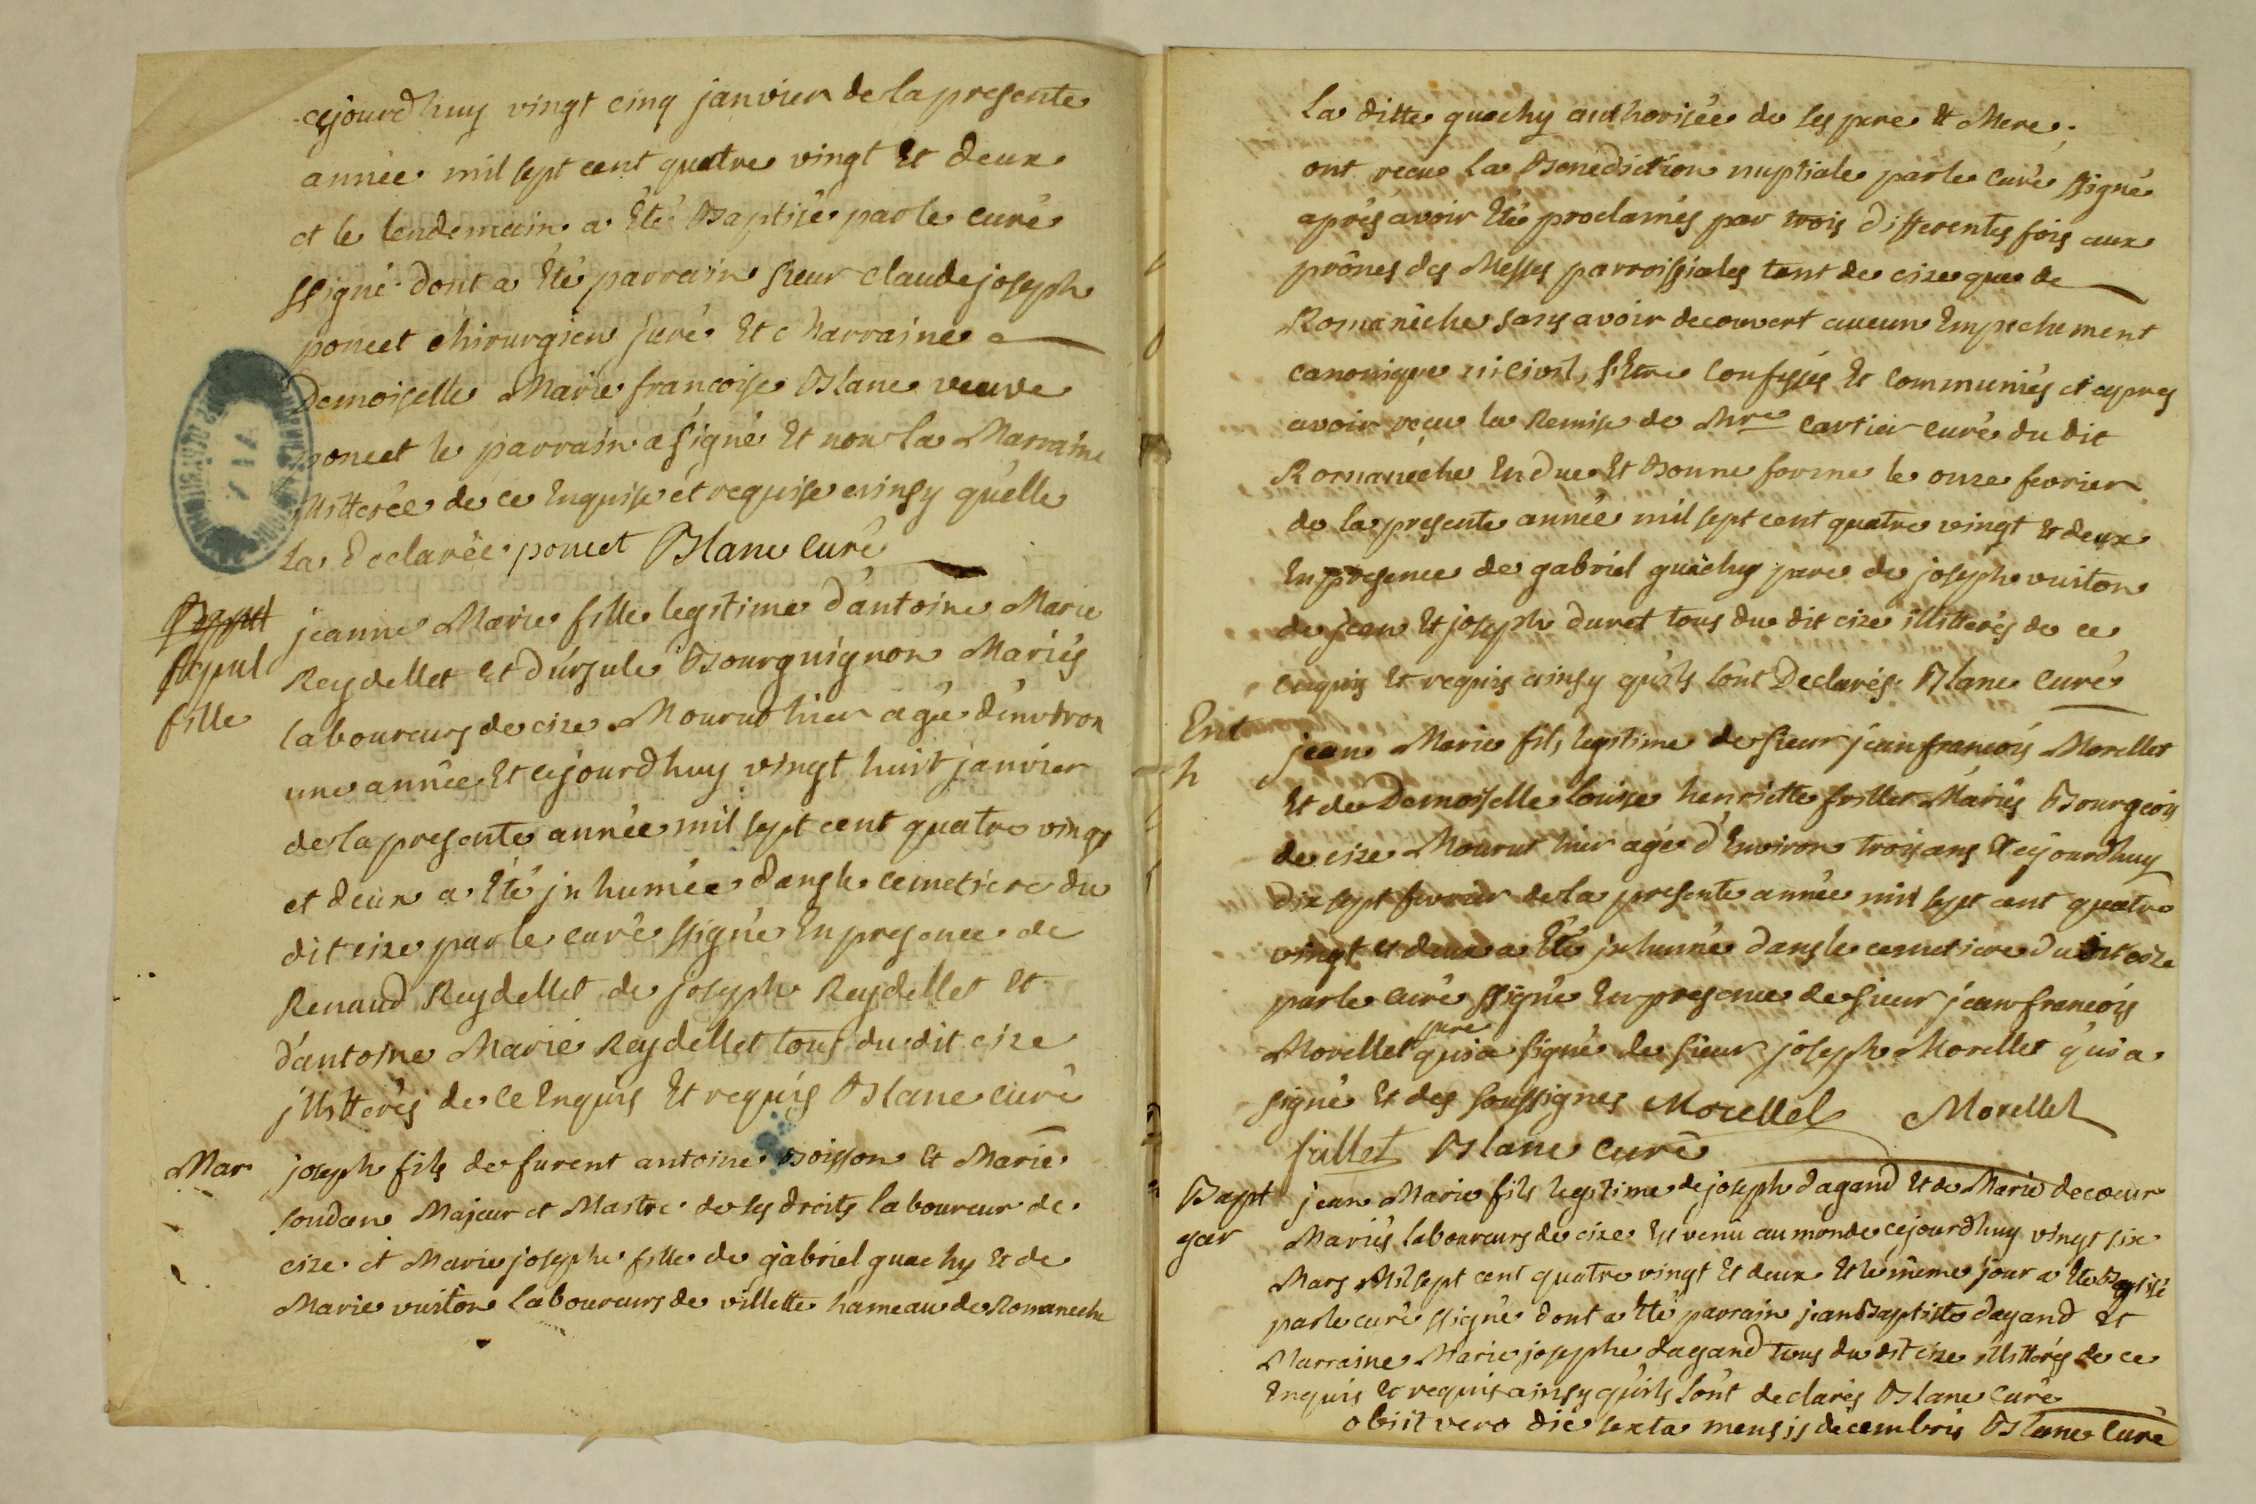 cejourdhuy vingt cinq janvier de la presente
année mil sept cent quatre vingt Et deux
et le lendemain a Eté Baptisé par le curé
ssigné dont a Eté parrain sieur claude joseph
poncet chirurgien juré Et Marraine
Demoiselle Marie francoise Blanc veuve
poncet le parrain a signé Et non la Marraine
illitérée de ce Enquise et requise ainsy quelle
la Declarée poncet Blanc Curé
Sepul
fille
jeanne Marie fille legitime d'antoine Marie
Reydellet Et d'ursule Bourguignon Mariés
laboureurs de cize Mourut hier agée d'environ
une année Et cejourdhuy vingt huit janvier
de la presente année mil sept cent quatre vingt
et deux a Eté jnhumée dans le cemetiere du
dit cize par le curé ssigné En presence de
Renaud Reydellet de joseph Reydellet Et
d'antoine Marie Reydellet tous du dit cize
jllitterés de ce Enquis Et requis Blanc curé
Mar
joseph fils de furent antoine Boisson Et Marie
soudan Majeur et Maitre de ses droits laboureur de
cize et Marie josephe fille de gabriel guechy Et de
Marie vuiton laboureurs de villette hameau de Romaneche
La ditte guechy authorisée de ses pere Et Mere
ont recue La Benediction nuptiale par le curé ssigné
aprés avoir Eté proclamés par trois differentes fois aux
prônes des Messes parroissiales tant de cize que de
Romaneche sans avoir decouvert aucun Empechement
canonique ni civil, s'Etre confessés Et communiés et apres
avoir reçu la Remise de Mre cartier curé du dit
Romaneche En due Et Bonne forme le onze fevrier
de la presente année mil sept cent quatre vingt Et deux
En presence de gabriel guechy pere de joseph vuiton
de jean Et joseph duret tous du dit cize illitterés de ce
enquis Et requis ainsy qu'ils sont Declarés Blanc Curé
Ent
h
jean Marie fils legitime de sieur jean francois Morellet
Et de Demoiselle louise henriette fillet Mariés Bourgeois
de cize Mourut hier agée d'Environ trois ans Et cejourdhuy
dix sept fevrier de la presente année mil sept cent quatre
vingt et deux a Eté jnhumé dans le cemetiere du dit cize
par le curé ssigné En presence de sieur jean francois
Morellet pere qui a signé de sieur joseph Morellet qui a
signé Et des soussignes Morellet Morellet
fillet Blanc curé
Bapt
gar
jean Marie fils legitime de joseph dagand Et de Marie decoeur
Mariés laboureurs de cize Est venû au monde cejourdhuy vingt six
Mars Mil sept cent quatre vingt Et deux Et le même jour a Eté Baptisé
par le curé ssigné dont a Eté parrain jean Baptiste dagand Et
Marraine Marie josephe dagand tous du dit cize illitterés de ce
Enquis Et requis ainsy qu'ils sont declarés Blanc Curé
obiit vero die sexta mensis decembris Blanc Curé